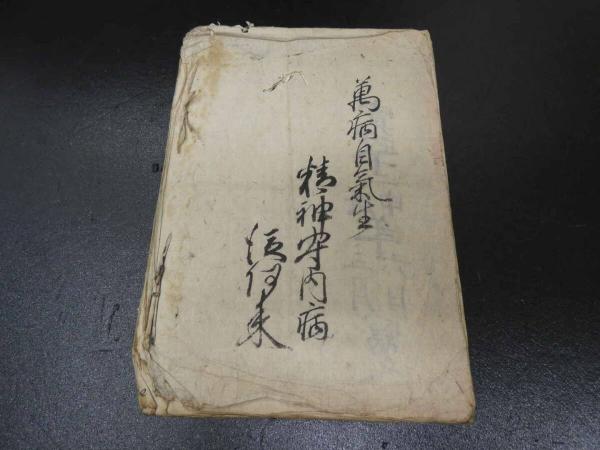 萬病自氣生
精神守内病
従何来